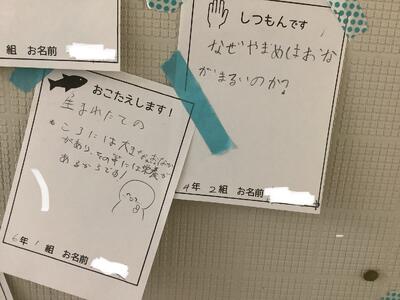 組 お名前
しつもんです
なぜやまめはおな
かまるいのか?
4年 2組 お名前
おこたえします!
生まれたての
ころには大きなおなか
があり、その中には栄養が
あるからです!
6年 1組 お名前